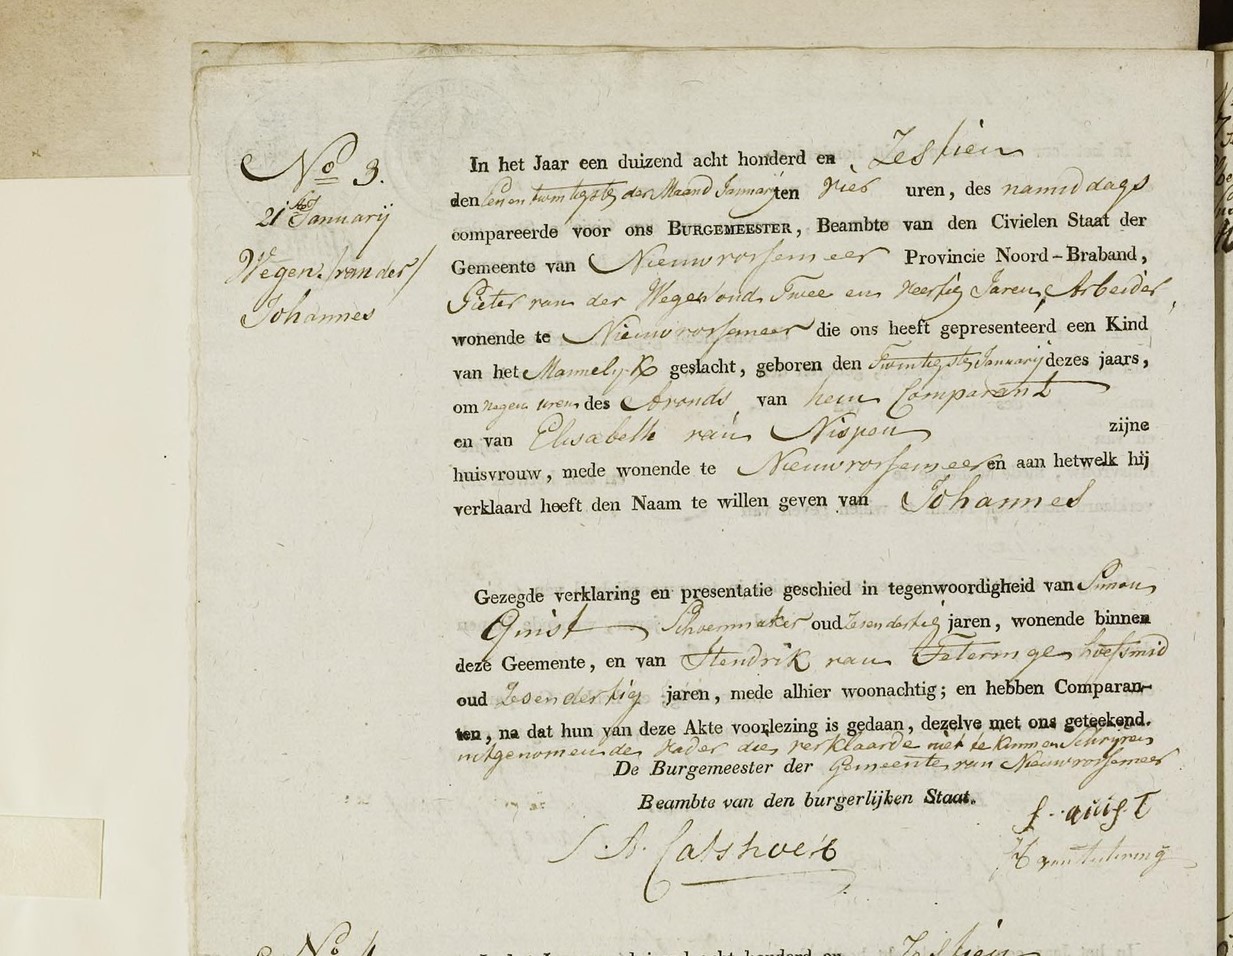 No 3.
21 Januarij
Wegen /van der/
Johannes
In het Jaar een duizend acht honderd en Zestien
den Eenentwintigste der Maand Januarij ten Vier uren, des namiddags
compareerde voor ons BURGEMEESTER, Beambte van den Civielen Staat der
Gemeente van Nieuwvossemeer Provincie Noord-Braband,
Pieter van der Wegen oud Twee en Veertig Jaren, Arbeider,
wonende te Nieuwvossemeer die ons heeft gepresenteerd een Kind
van het Mannelyk geslacht, geboren den Twintigste Januarij dezes jaars,
om negen uren des Avonds, van hem Comparant
en van Elisabeth van Nispen zijne
huisvrouw, mede wonende te Nieuwvossemeer en aan hetwelk hij
verklaard heeft den Naam te willen geven van Johannes
Gezegde verklaring en presentatie geschied in tegenwoordigheid van Simon
Quist Schoenmaker oud Zesendertig jaren, wonende binnen
deze Geemente, en van Hendrik van Teteringe hoefsmid
oud Zesendertig jaren, mede alhier woonachtig; en hebben Comparan-
ten, na dat hun van deze Akte voorlezing is gedaan, dezelve met ons geteekend.
uitgenomen de Vader die verklaarde niet te kunnen Schryven
De Burgemeester der Gemeente van Nieuwvossemeer
Beambte van den burgerlijken Staat.
S. quist
H van tetering
Catshoek
No 4
Zestien